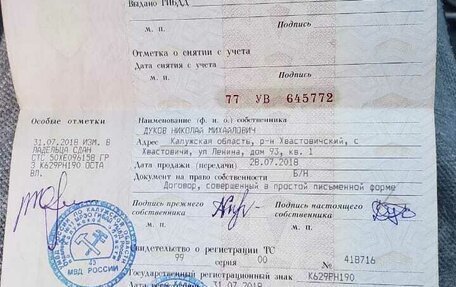 Выдано ГИБДД
Подпись
м. п.
Отметка о снятии с учета
Дата снятия с учета
м. п.
Подпись
77 УВ 645772
Особые отметки
Наименование (ф. и. о.) собственника
ДУКОВ НИКОЛАЙ МИХАЙЛОВИЧ
31.07.2018 ИЗМ. В
ЛАДЕЛЬЦА СДАН
СТС 50ХЕ096158 ГР
З К629РН190 ОСТА
ВЛ.
Адрес Калужская область, р-н Хвастовичский, с
Хвастовичи, ул Ленина, дом 93, кв. 1
Дата продажи (передачи) 28.07.2018
Документ на право собственности Б/Н
Договор, совершенный в простой письменной форме
Подпись прежнего собственника
Подпись настоящего собственника
м. п.
м. п.
Свидетельство о регистрации ТС
серия 99 00 № 41В716
Государственный регистрационный знак К629РН190
Дата регистрации 31.07.2018
МВД РОССИИ